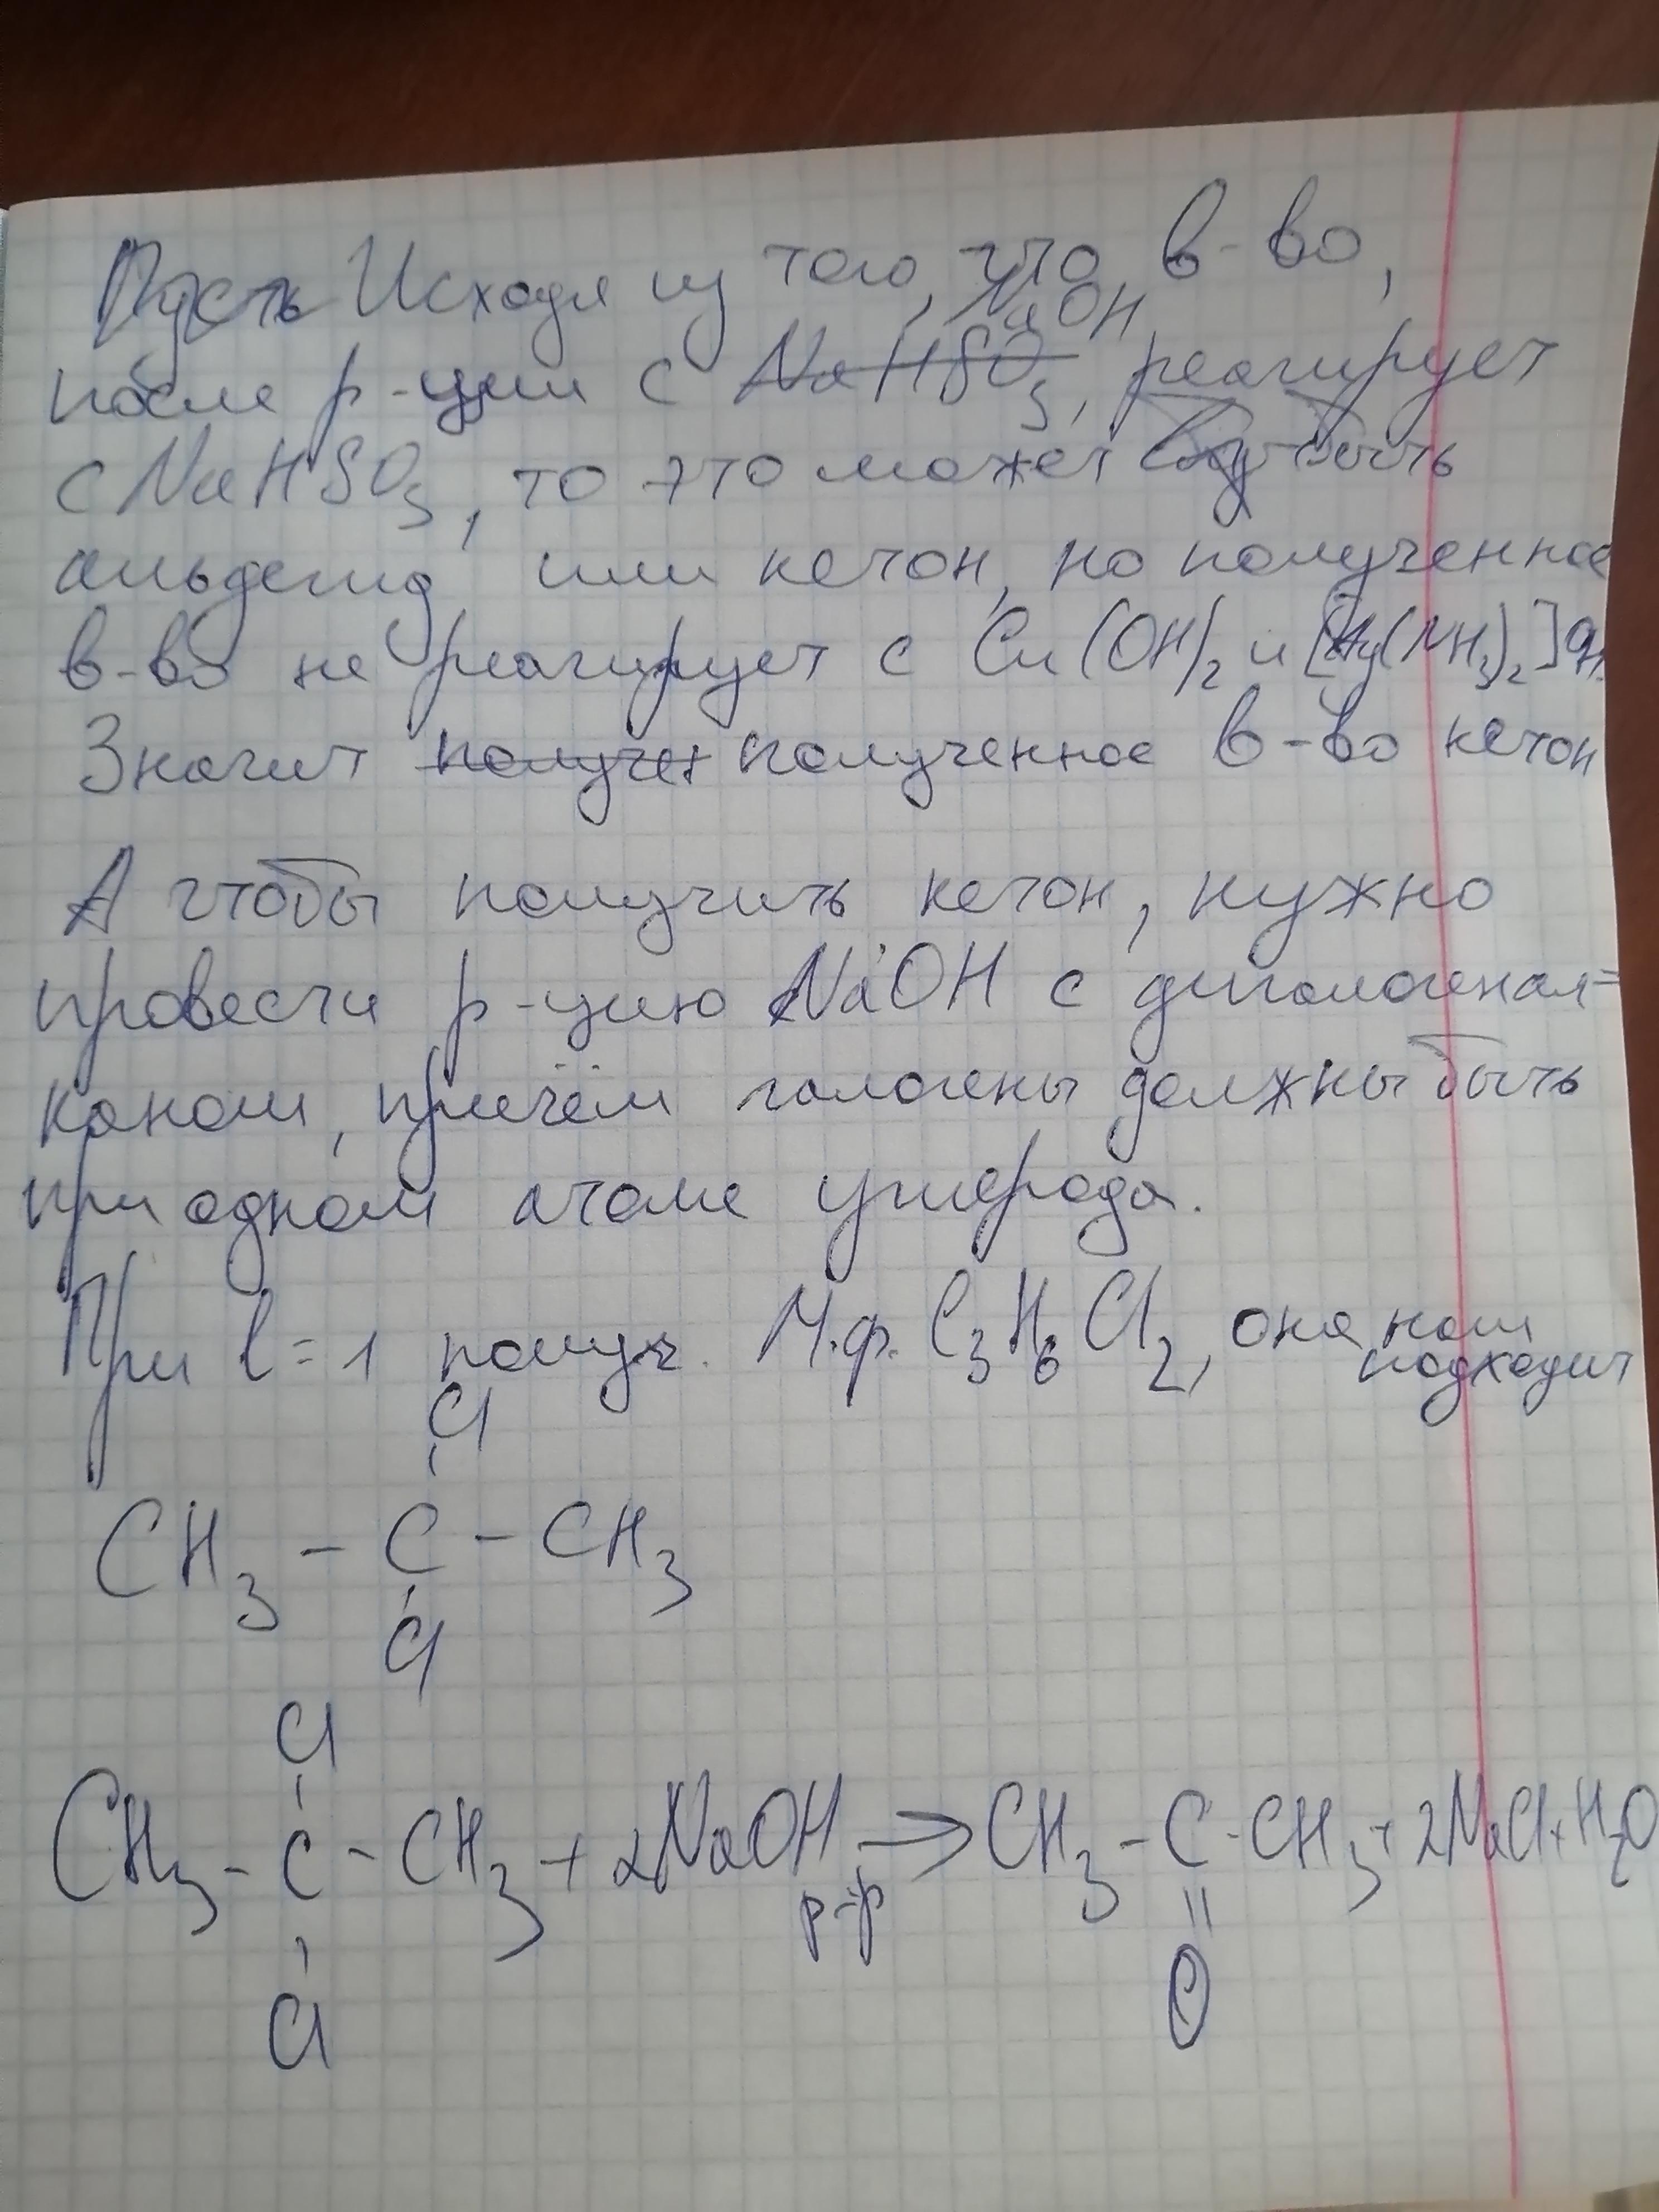 Пусть Исходя из того, что в-во,
NaOH
после р-ции с NaHSO3, реагирует
с NaHSO3, то это может быть
альдегид или кетон, но полученное
в-во не реагирует с Cu(OH)2 и [Ag(NH3)2]OH.
Значит получен полученное в-во кетон
А чтобы получить кетон, нужно
провести р-цию NaOH с дигалогенал-
каном, причём галогены должны быть
при одном атоме углерода.
При l=1 получ. М.ф. C3H6Cl2, она нам
подходит
Cl
CH3 - C - CH3
Cl
Cl
CH3 - C - CH3 + 2NaOH → CH3 - C - CH3 + 2NaCl + H2O
р-р
O
Cl